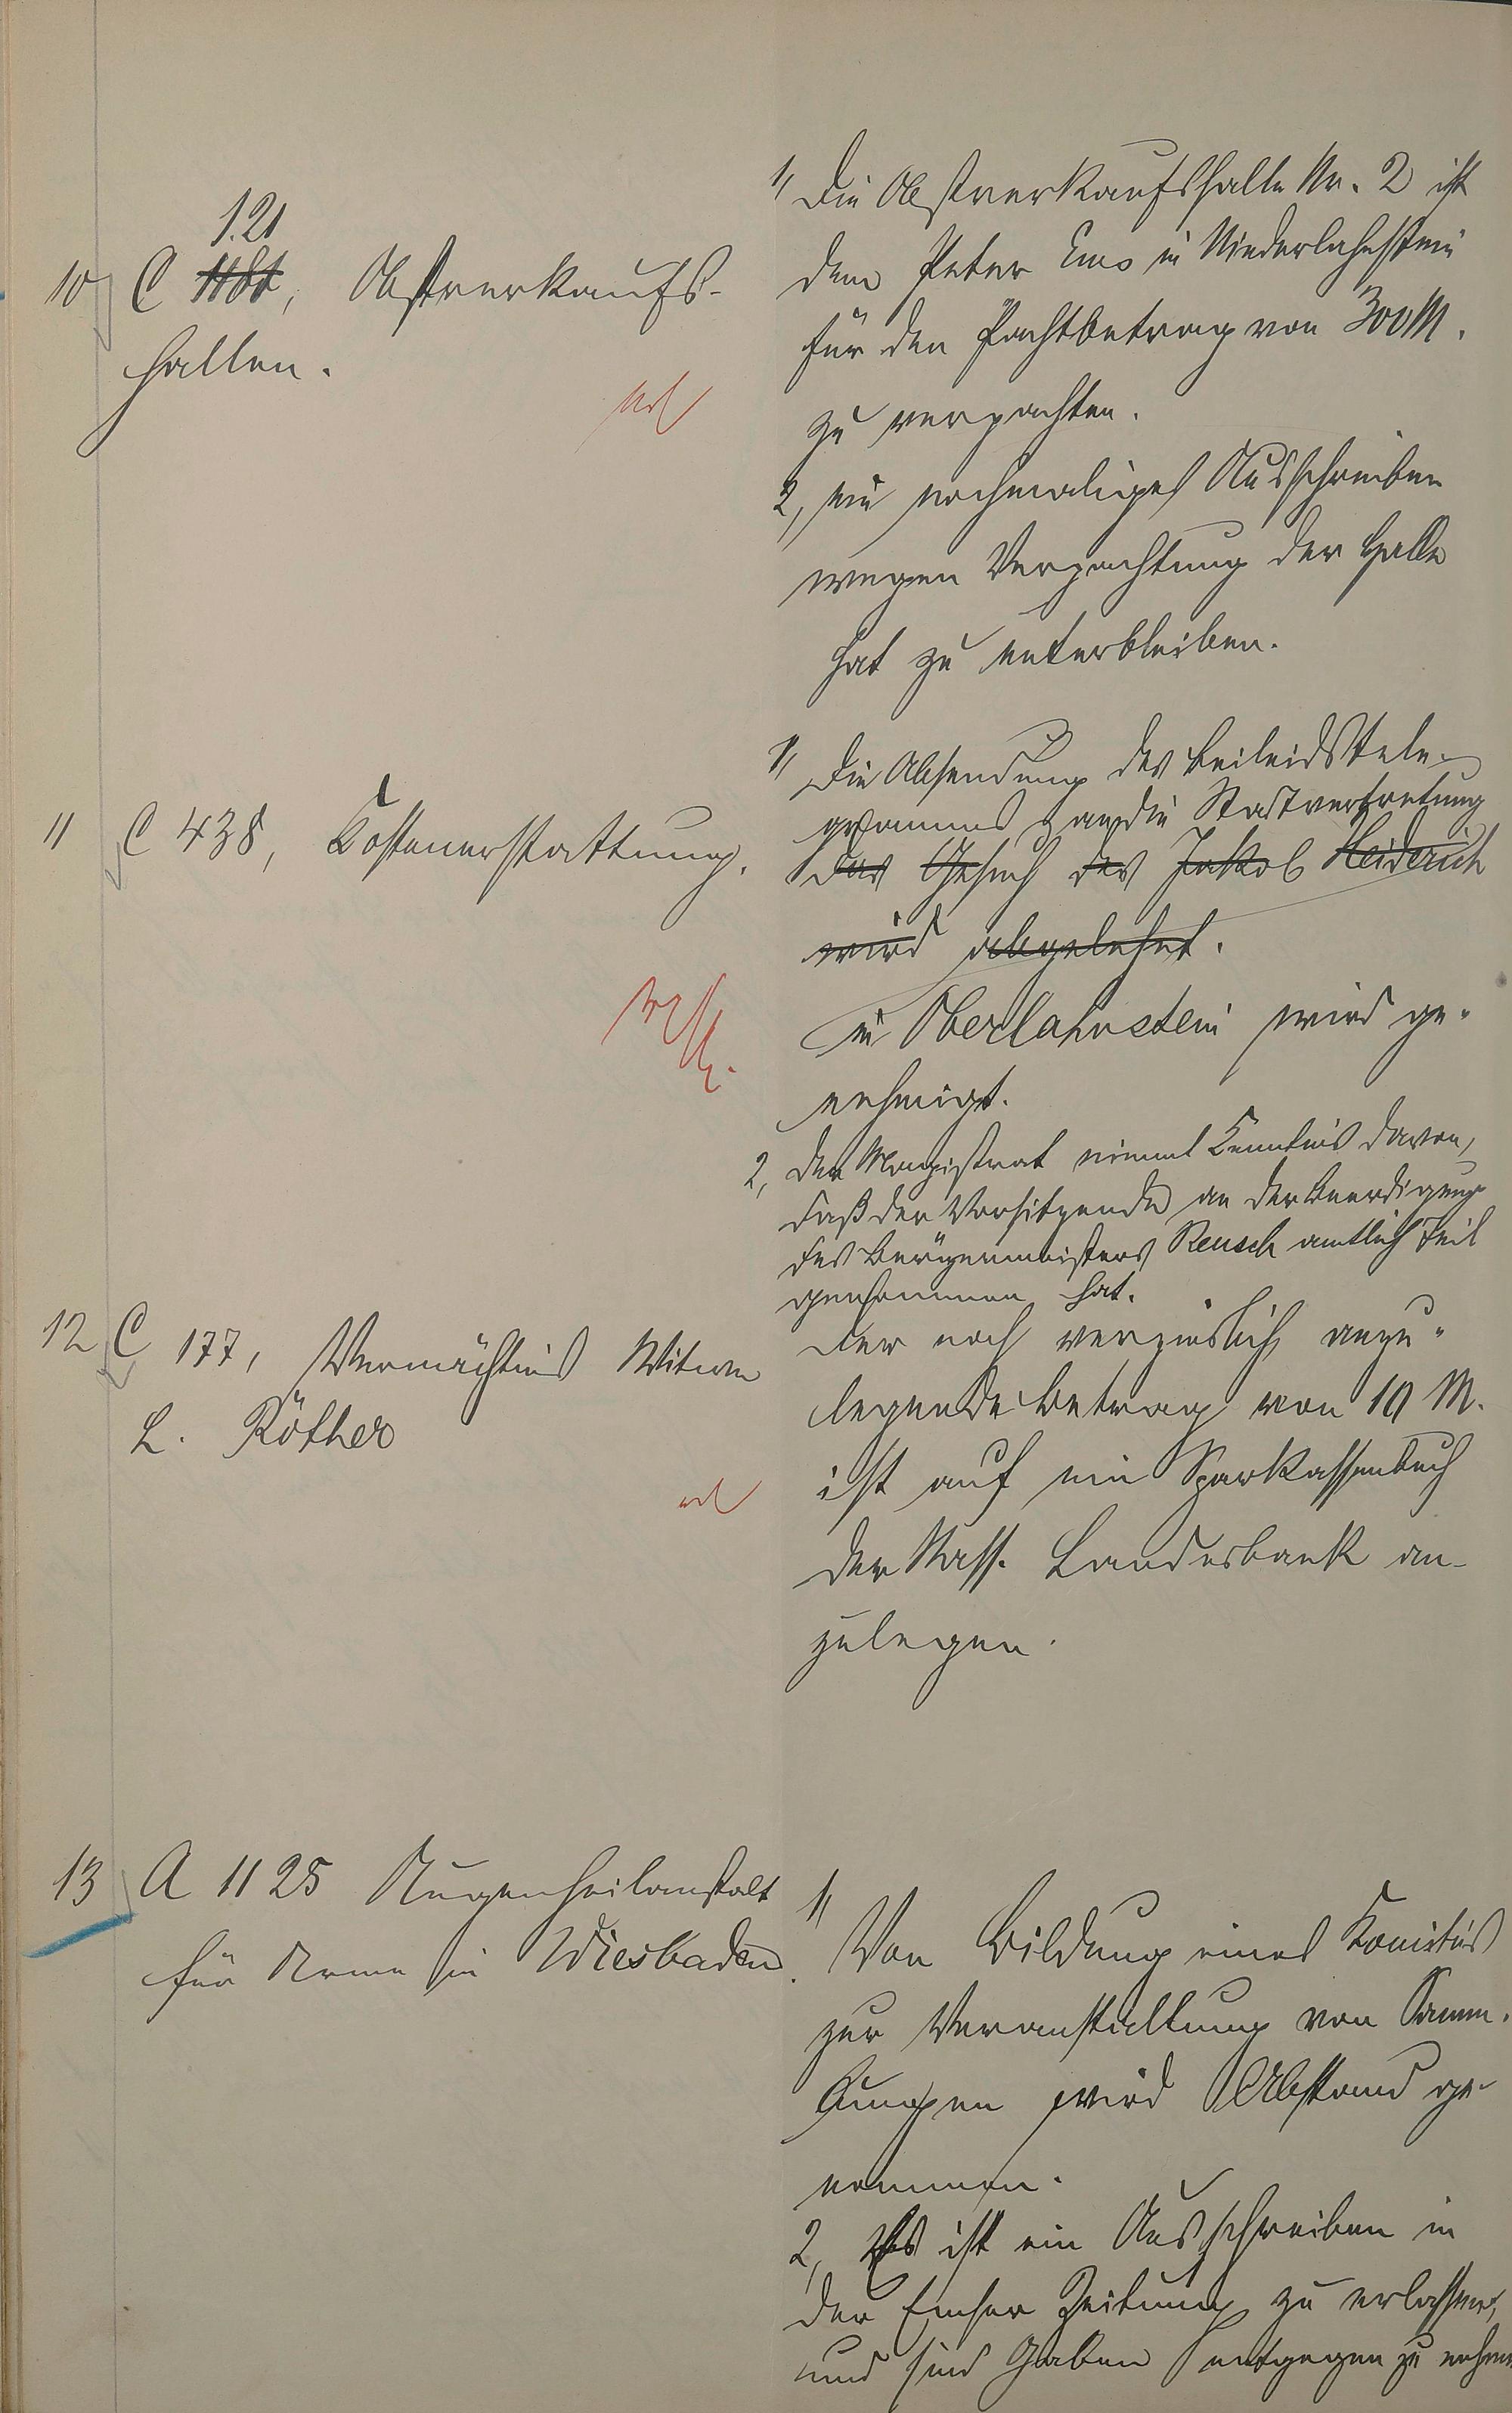 1.21
10 C 1181, Obstverkaufs-
hallen.
1, Die Obstverkaufshalle Nr. 2 ist
dem Peter Ems in Niederlahnstein
für den Pachtbetrag von 300 M.
zu verpachten.
2, ein nochmaliges Ausschreiben
wegen Verpachtung der Halle
hat zu unterbleiben.
11 C 438, Kostenerstattung.
1, Die Absendung des Beileidstele-
gramms an die Stadtvertretung
Das Gesuch des Jakob Heiderich
wird abgelehnt.
in Oberlahnstein wird ge-
nehmigt.
2, Der Magistrat nimmt Kenntnis davon,
daß der Vorsitzende an der Beerdigung
des Bürgermeisters Reusch amtlich Teil
genommen hat.
12 C 177, Vermächtnis Witwe
L. Röther
Der noch verzinslich anzu-
legende Betrag von 10 M.
ist auf ein Sparkassenbuch
der Nass. Landesbank an-
zulegen.
13 A 1125 Augenheilanstalt
für Arme in Wiesbaden.
1, Von Bildung eines Komités
zur Veranstaltung von Samm-
lungen wird Abstand ge-
nommen.
2, Es ist ein Ausschreiben in
der Emser Zeitung zu erlassen,
und sind Gaben entgegen zu nehmen